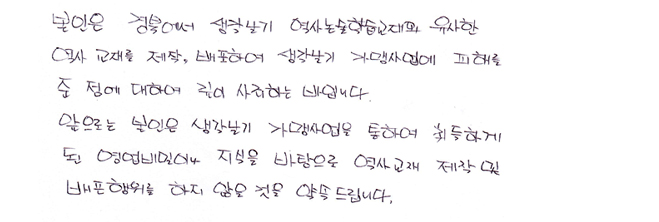 본인은 경북에서 생각날기 역사논술학습교재와 유사한
역사 교재를 제작, 배포하여 생각날기 가맹사업에 피해를
준 점에 대하여 깊이 사죄하는 바입니다.
앞으로는 본인은 생각날기 가맹사업을 통하여 취득하게
된 영업비밀이나 지식을 바탕으로 역사교재 제작 및
배포행위를 하지 않을 것을 약속드립니다.